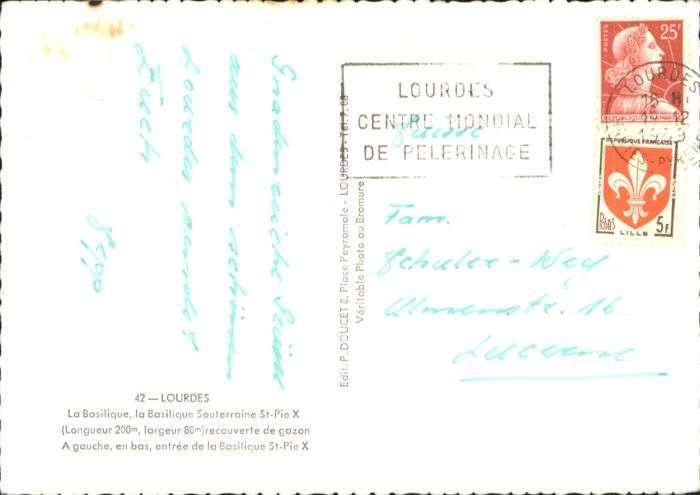 Gnadenreiche Grüsse
aus dem schönen
Lourdes sendet
Euch
42 — LOURDES
La Basilique, la Basilique Souterraine St-Pie X
(Longueur 200m, largeur 80m) recouverte de gazon
A gauche, en bas, entrée de la Basilique St-Pie X
Edit. P. DOUCET 8, Place Peyramale - LOURDES - Tél. 7.08
Véritable Photo au Bromure
LOURDES
CENTRE MONDIAL
DE PELERINAGE
POSTES
25F
LOURDES
12
REPUBLIQUE FRANÇAISE
POSTES
5F
LILLE
Fam.
Schuler-Wey
Ulmenstr. 16
Lucerne